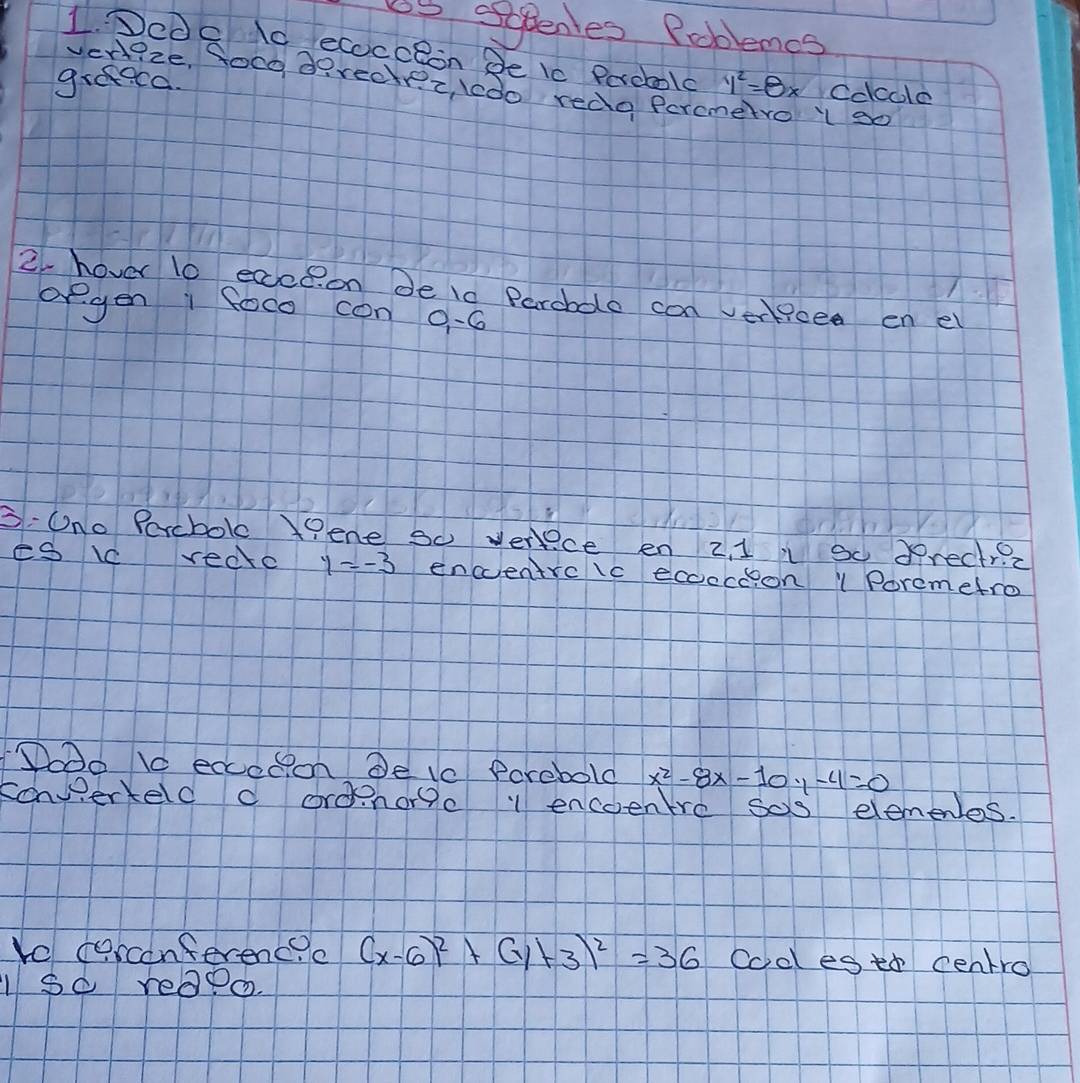 os siguientes Problemas
1. Dada la ecuacción de la Parabola y²=8x calcula
vertize, foco, directriz, lado recto, Parametro y su
grafica.
2.- hayar la ecuccion de la Parabola con vertices en el
origen y foco con 0,-6
3.- Una Parabola tiene su vertice en 2,1 y su directriz
es la recta y=-3 encuentra la ecuaccion y Parametro
-Dada la ecuacion de la Parabola x²-8x-10y-4=0
conviertela a ordinaria y encuentra sus elementos.
la circunferencia (x-6)²+(y+3)²=36 Cual es centro
y su radio.